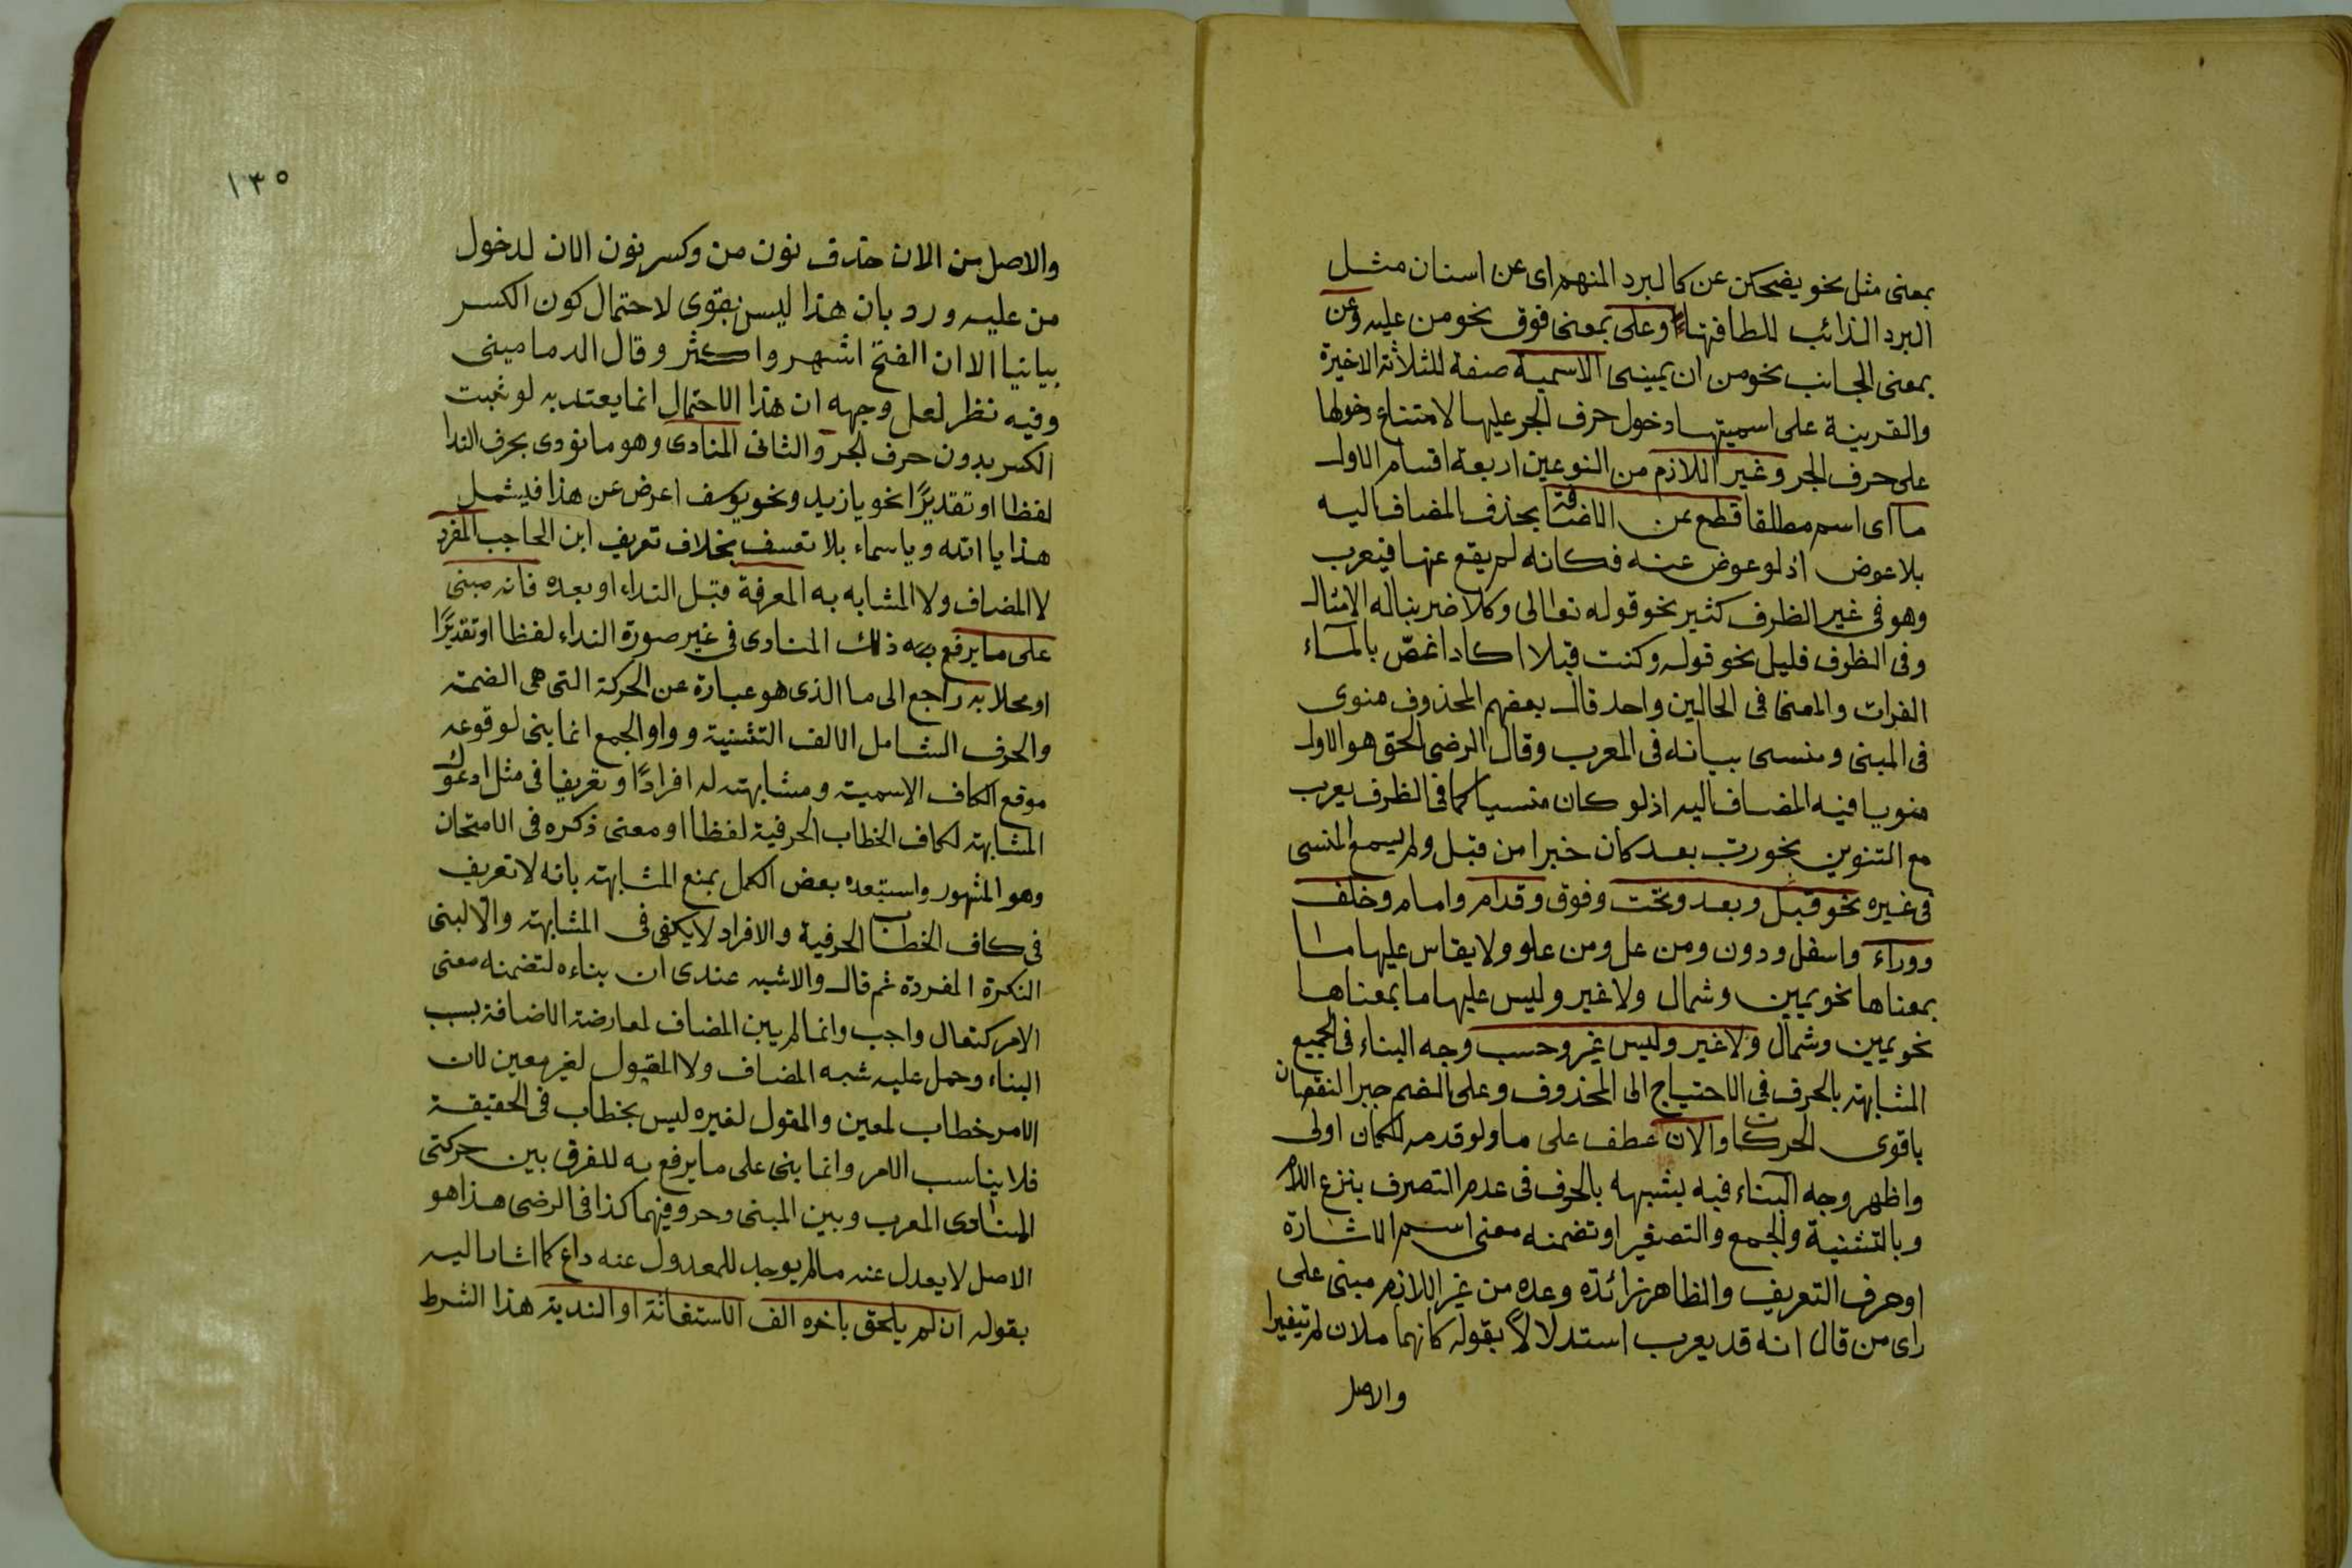 بمعنى مثل نحو يضحكن عن كالبرد المنهم اى عن اسنان مثل
البرد الذائب للطافتها وعلى بمعنى فوق نحو من عليه وعن
بمعنى الجانب نحو من ان يمينى الاسمية صفة للثلاثة الاخيرة
والقرينة على اسميتها دخول حرف الجر عليها لامتناع دخولها
على حرف الجر وغير اللازم من النوعين اربعة اقسام الاول
ما اى اسم مطلقا قطع عن الاضافة بحذف المضاف اليه
بلا عوض اذ لو عوض عنه فكانه لم يقع عنها فيعرب
وهو فى غير الظرف كثير نحو قوله تعالى وكلا ضربنا له الامثال
وفى الظرف قليل نحو قوله وكنت قبلا اكاد اغصّ بالماء
الفرات والمعنى فى الحالين واحد قال بعضهم المحذوف منوى
فى المبنى ومنسى بيانه فى المعرب وقال الرضى الحق هو الاول
منويا فيه المضاف اليه اذ لو كان منسيا كما فى الظرف يعرب
مع التنوين نحو رب بعد كان خيرا من قبل ولم يسمع المنسى
فى غيره نحو قبل وبعد وتحت وفوق وقدام وامام وخلف
ووراء واسفل ودون ومن عل ومن علو ولا يقاس عليها ما
بمعناها نحو يمين وشمال ولا غير وليس عليها ما بمعناها
نحو يمين وشمال ولا غير وليس غير وحسب وجه البناء فى الجميع
المشابهة بالحرف فى الاحتياج الى المحذوف وعلى الضم جبرا لنقصان
باقوى الحركات والان عطف على ما ولو قدمه لكان اولى
واظهر وجه البناء فيه يشبهه بالحرف فى عدم التصرف بنزع اللام
وبالتثنية والجمع والتصغير او تضمنه معنى اسم الاشارة
او حرف التعريف والظاهر زائدة وعده من غير اللازم مبنى على
راى من قال انه قد يعرب استدلالا بقوله كانهما ملان لم يتغيرا
والاصل
١٣٥
والاصل من الان حذف نون من وكسر نون الان لدخول
من عليه ورد بان هذا ليس بقوى لاحتمال كون الكسر
بيانيا الا ان الفتح اشهر واكثر وقال الدمامينى
وفيه نظر لعل وجهه ان هذا الاحتمال انما يعتد به لو ثبت
الكسر بدون حرف الجر والثانى المنادى وهو ما نودى بحرف الندا
لفظا او تقديرًا نحو يا زيد ونحو يوسف اعرض عن هذا فيشمل
هذا يا الله ويا سماء بلا تعسف بخلاف تعريف ابن الحاجب المفرد
لا المضاف ولا المشابه به المعرفة قبل النداء او بعده فانه مبنى
على ما يرفع به ذلك المنادى فى غير صورة النداء لفظا او تقديرًا
او محلا به راجع الى ما الذى هو عبارة عن الحركة التى هى الضمة
والحرف الشامل الالف التثنية وواو الجمع انما بنى لوقوعه
موقع الكاف الاسمية ومشابهته له افرادًا وتعريفا فى مثل ادعوك
المشابهة لكاف الخطاب الحرفية لفظا او معنى ذكره فى الامتحان
وهو المشهور واستبعده بعض الكمل بمنع المشابهة بانه لا تعريف
فى كاف الخطاب الحرفية والافراد لا يكفى فى المشابهة والا لبنى
النكرة المفردة ثم قال والاشبه عندى ان بناءه لتضمنه معنى
الامر كتعال واجب وانما لم يبن المضاف لمعارضة الاضافة بسبب
البناء وحمل عليه شبه المضاف ولا المقبول لغير معين لان
الامر خطاب لمعين والمقول لغيره ليس بخطاب فى الحقيقة
فلا يناسب الامر وانما بنى على ما يرفع به للفرق بين حركتى
المنادى المعرب وبين المبنى وحروفيهما كذا فى الرضى هذا هو
الاصل لا يعدل عنه ما لم يوجد للمعدول عنه داع كما اشار اليه
بقوله ان لم يلحق باخره الف الاستغاثة او الندبة هذا الشرط